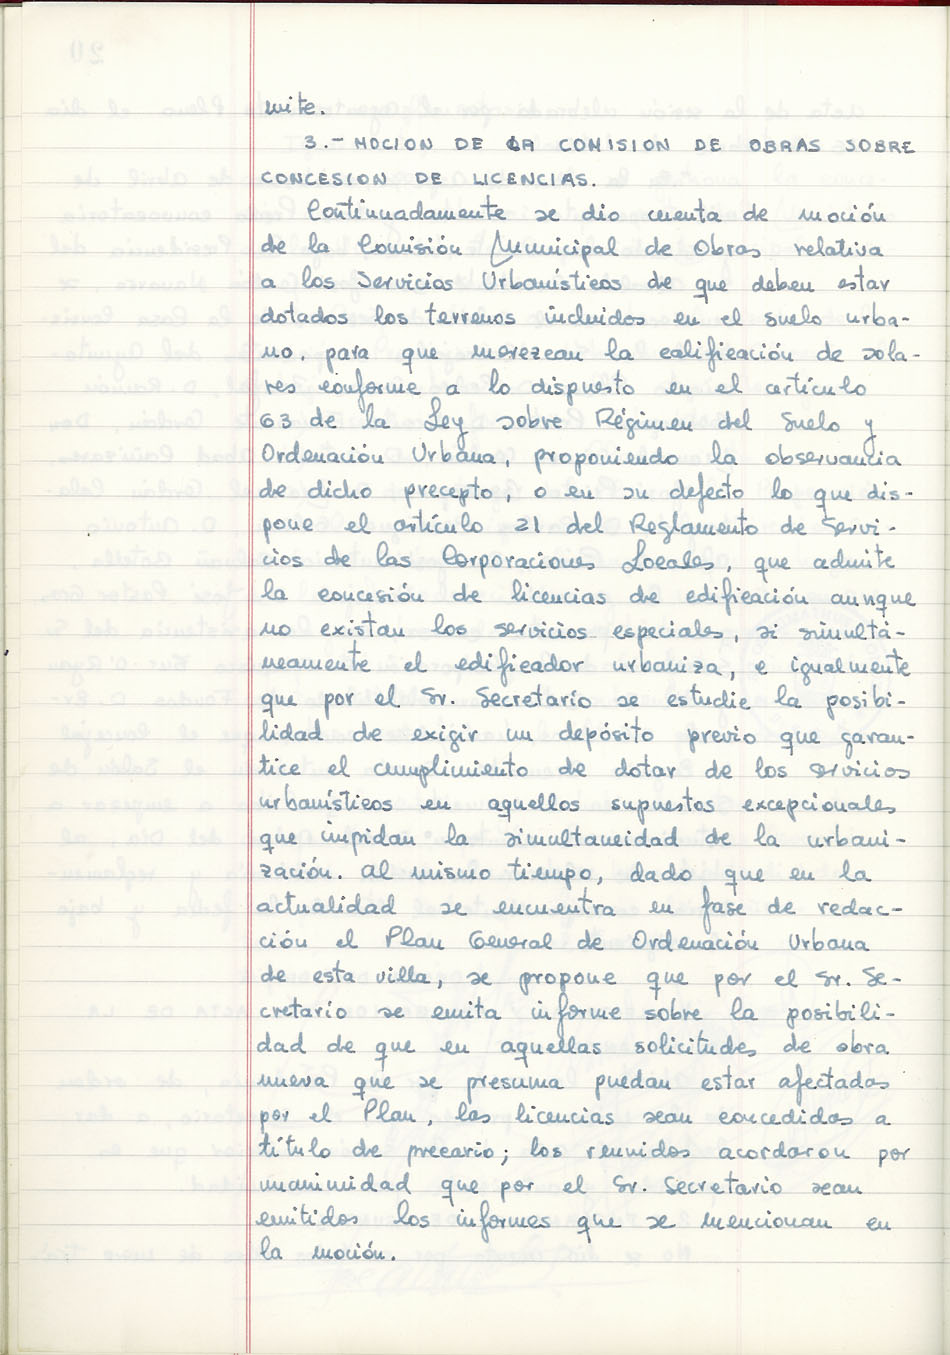 mite.
3.- MOCION DE LA COMISION DE OBRAS SOBRE
CONCESION DE LICENCIAS.
Continuadamente se dio cuenta de moción
de la Comisión Municipal de Obras relativa
a los Servicios Urbanísticos de que deben estar
dotados los terrenos incluidos en el suelo urba-
no, para que merezcan la calificación de sola-
res conforme a lo dispuesto en el artículo
63 de la Ley sobre Régimen del Suelo y
Ordenación Urbana, proponiendo la observancia
de dicho precepto, o en su defecto lo que dis-
pone el artículo 21 del Reglamento de Servi-
cios de las Corporaciones Locales, que admite
la concesión de licencias de edificación aunque
no existan los servicios especiales, si simultá-
neamente el edificador urbaniza, e igualmente
que por el Sr. Secretario se estudie la posibi-
lidad de exigir un depósito previo que garan-
tice el cumplimiento de dotar de los servicios
urbanísticos en aquellos supuestos excepcionales
que impidan la simultaneidad de la urbani-
zación. Al mismo tiempo, dado que en la
actualidad se encuentra en fase de redac-
ción el Plan General de Ordenación Urbana
de esta villa, se propone que por el Sr. Se-
cretario se emita informe sobre la posibili-
dad de que en aquellas solicitudes de obra
nueva que se presuma puedan estar afectadas
por el Plan, las licencias sean concedidas a
título de precario; los reunidos acordaron por
unanimidad que por el Sr. Secretario sean
emitidos los informes que se mencionan en
la moción.